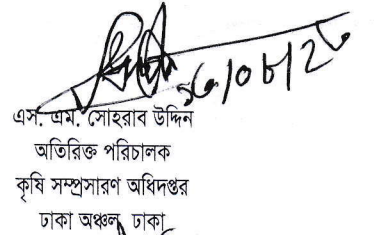 এস. এম. সোহরাব উদ্দিন
অতিরিক্ত পরিচালক
কৃষি সম্প্রসারণ অধিদপ্তর
ঢাকা অঞ্চল, ঢাকা